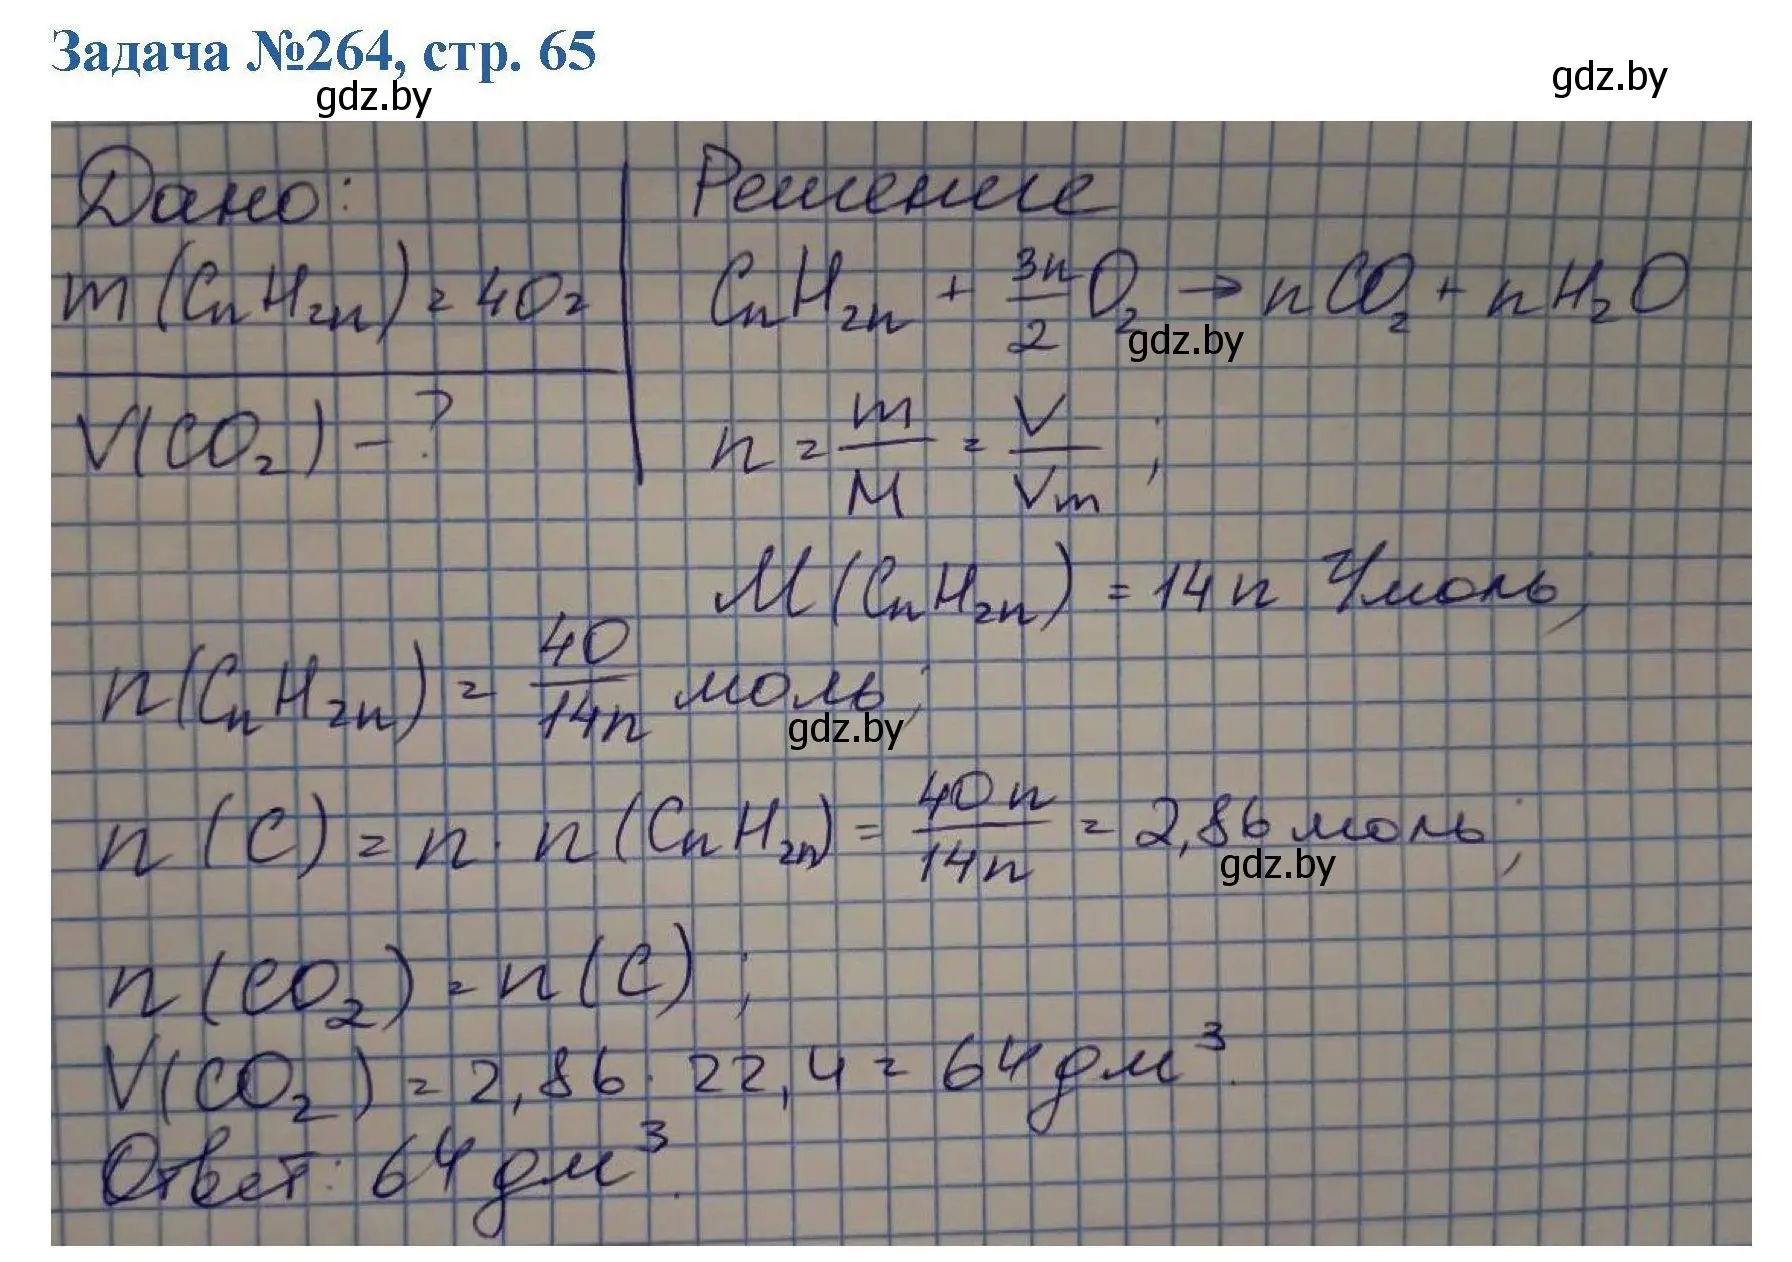 Задача №264, стр. 65
gdz.by
gdz.by
Дано:
Решение
m (CnH2n) = 40г
CnH2n + 3n/2 O2 → nCO2 + nH2O
gdz.by
V(CO2) - ?
n = m/M = V/Vm ;
M (CnH2n) = 14n г/моль;
n(CnH2n) = 40/14n моль;
gdz.by
n (C) = n · n (CnH2n) = 40n/14n = 2,86 моль;
gdz.by
n (CO2) = n (C) ;
V(CO2) = 2,86 · 22,4 = 64 дм³.
Ответ: 64 дм³.